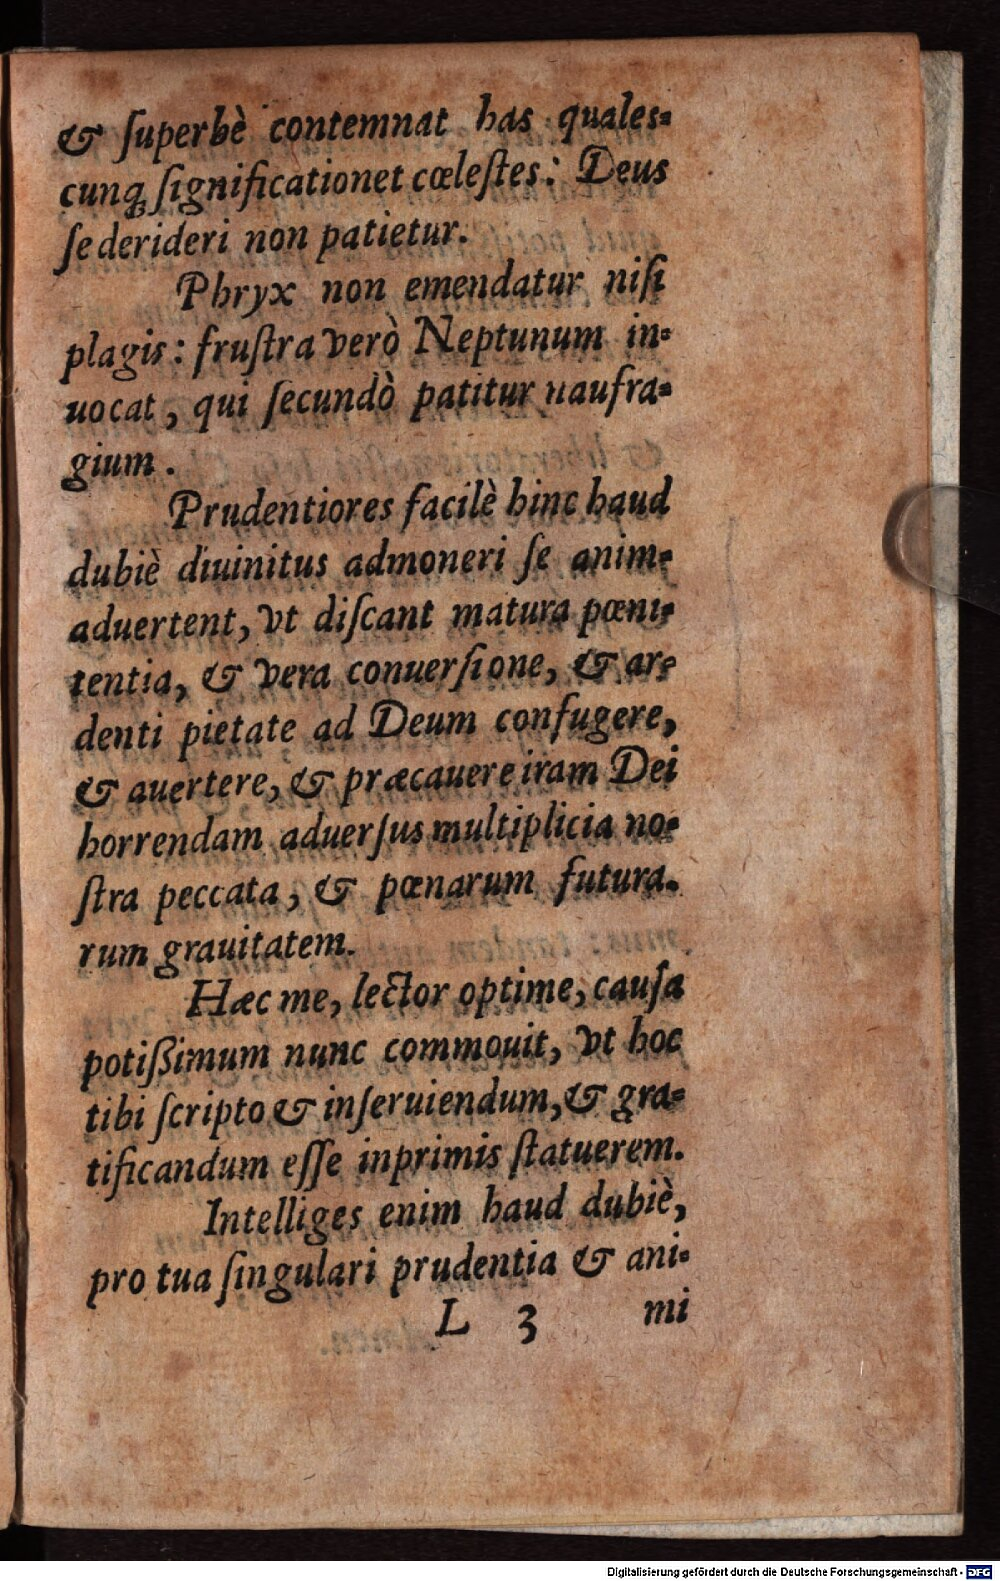 & ſuperbè contemnat has quales=
cunq́ſignificationet cœleſtes: Deus
ſe derideri non patietur.
Phryx non emendatur niſi
plagis: fruſtra verò Neptunum in=
uocat, qui ſecundò patitur naufra=
gium.
Prudentiores facilè hinc haud
dubiè diuinitus admoneri ſe anim=
aduertent, vt diſcant matura pœni=
tentia, & vera conuerſione, & ar=
denti pietate ad Deum confugere,
& auertere, & præcauere iram Dei
horrendam aduerſus multiplicia no=
ſtra peccata, & pœnarum futura.
rum grauitatem.
Hæc me, lector optime, cauſa
potiſſimum nunc commouit, vt hoc
tibi ſcripto & inſeruiendum, & gra=
tificandum eſſe inprimis ſtatuerem.
Intelliges enim haud dubiè,
pro tua ſingulari prudentia & ani=
L 3 mi
Digitalisierung gefördert durch die Deutsche Forschungsgemeinschaft - DFG